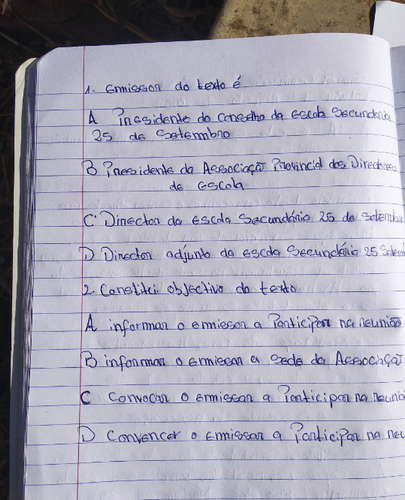 1. Emissor do texto é
A Presidente do conselho da escola Secundária
25 de Setembro
B Presidente da Associação Provincial dos Directores
de escola
C. Director da escola Secundária 25 de Setembro
D Director adjunto da escola Secundária 25 Setem
2. Constitui objectivo do texto
A informar o emissor a Participar na reunião
B informar o emissor a sede da Associação
C Convocar o emissor a Participar na reuniã
D Convencer o emissor a Participar na reu